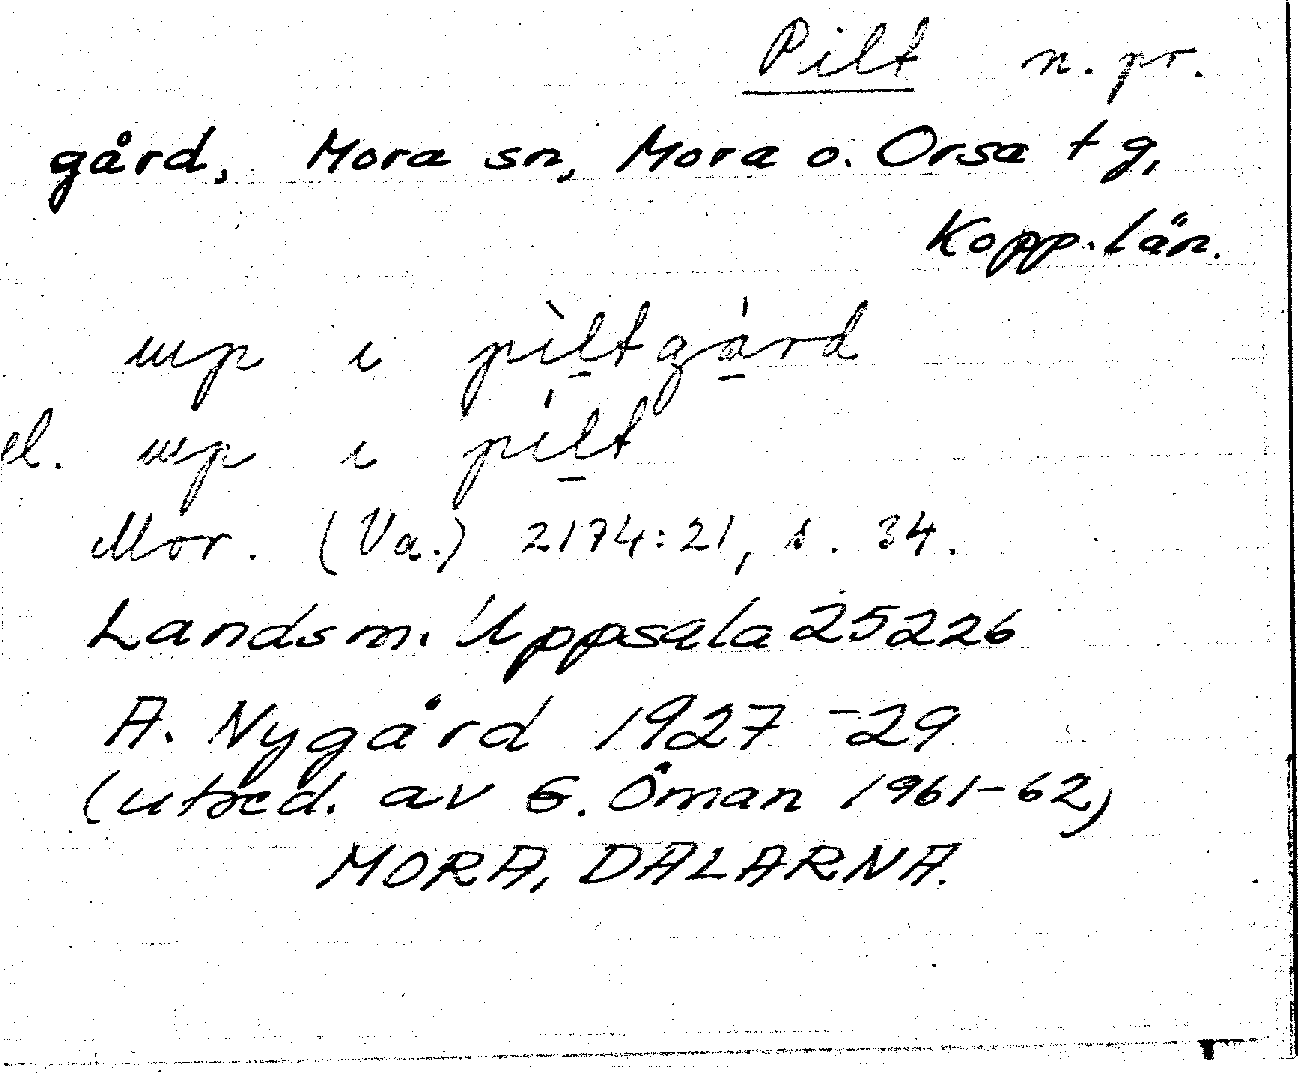 Pilt n. pr.
gård, Mora sn, Mora o. Orsa tg,
Kopp. län.
up i piltgård
el. up i pilt
Mor. (Va.) 2174:21, s. 34.
Landsm. Uppsala 25226
A. Nygård 1927-29
(utred. av G. Öman 1961-62)
MORA, DALARNA.